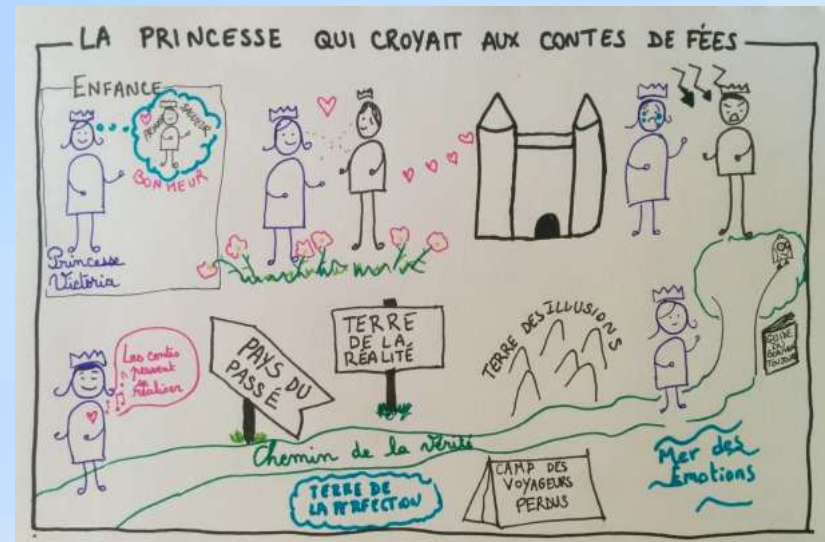 LA PRINCESSE QUI CROYAIT AUX CONTES DE FÉES
ENFANCE
PRINCE SAUVEUR
BONHEUR
Princesse
Victoria
Les contes
peuvent
se
réaliser
PAYS DU
PASSÉ
TERRE
DE LA
RÉALITÉ
TERRE DES ILLUSIONS
GUIDE
DU
BONHEUR
TOUJOURS
Chemin de la vérité
TERRE DE
LA PERFECTION
CAMP DES
VOYAGEURS
PERDUS
Mer des
Émotions